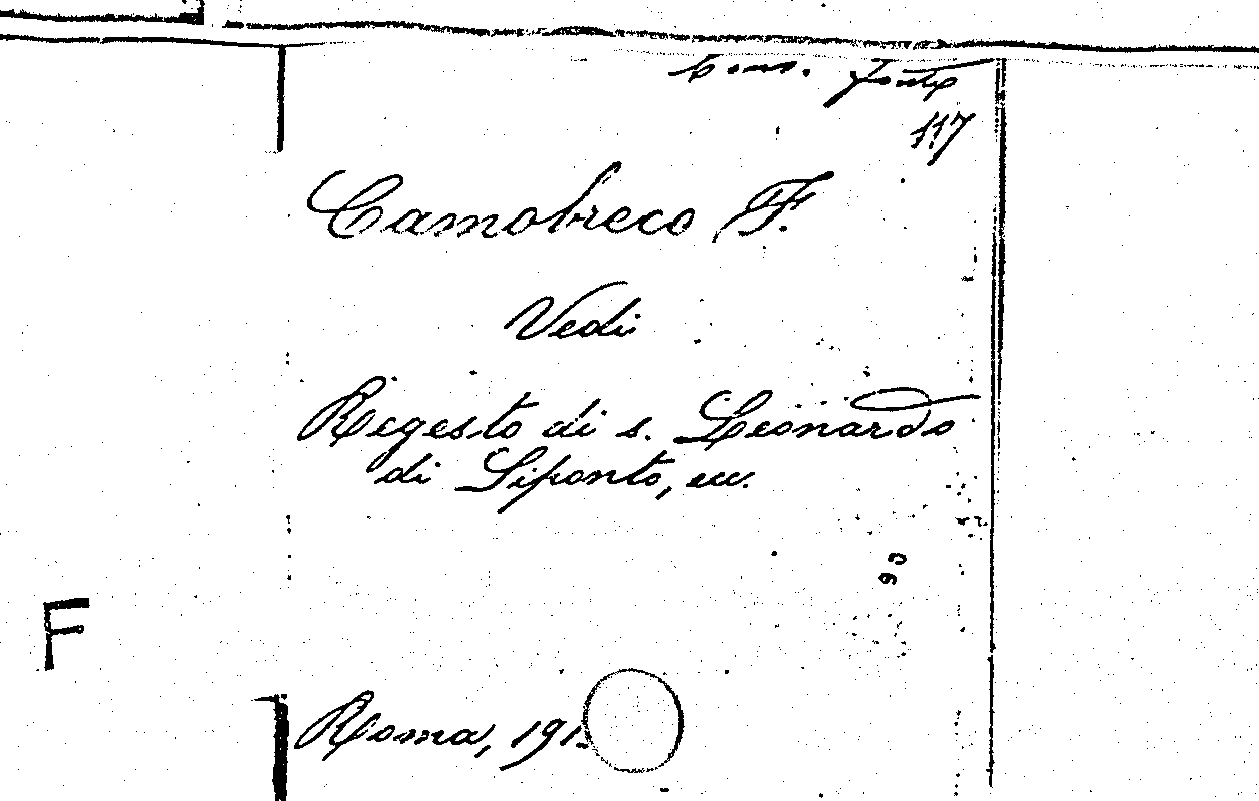 Cons. Fonti
117
Camobreco F.
Vedi
Regesto di s. Leonardo
di Siponto, ecc.
F
Roma, 191